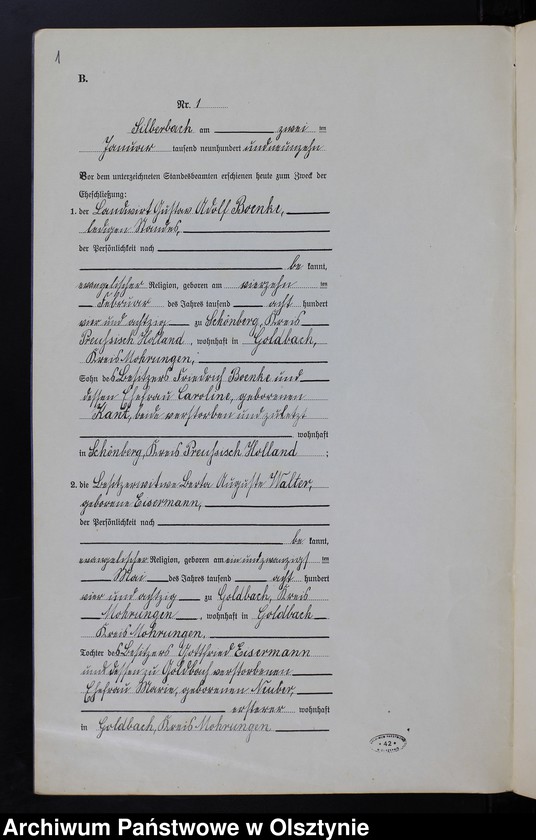 1
B.
Nr. 1
Silberbach am zwei ten
Januar tausend neunhundert undneunzehn
Vor dem unterzeichneten Standesbeamten erschienen heute zum Zweck der
Eheschließung:
1. der Landwirt Gustav Adolf Boenke,
ledigen Standes,
der Persönlichkeit nach
be kannt,
evangelischer Religion, geboren am vierzehn ten
Februar des Jahres tausend acht hundert
vier und achtzig zu Schönberg, Kreis
Preußisch Holland, wohnhaft in Goldbach,
Kreis Mohrungen,
Sohn des Besitzers Friedrich Boenke und
dessen Ehefrau Caroline, geborenen
beide verstorben und zuletzt
wohnhaft
in Schönberg, Kreis Preußisch Holland ;
2. die Besitzerwitwe Berta Auguste Walter,
geborene Eisermann,
der Persönlichkeit nach
be kannt,
evangelischer Religion, geboren am ein und zwanzigs ten
Mai des Jahres tausend acht hundert
vier und achtzig zu Goldbach, Kreis
Mohrungen, wohnhaft in Goldbach
Kreis Mohrungen,
Tochter des Besitzers Gottfried Eisermann
und dessen zu Goldbach verstorbenen
Ehefrau Marie, geborenen Neuber,
ersterer wohnhaft
in Goldbach, Kreis Mohrungen
* 42 *
Archiwum Państwowe w Olsztynie